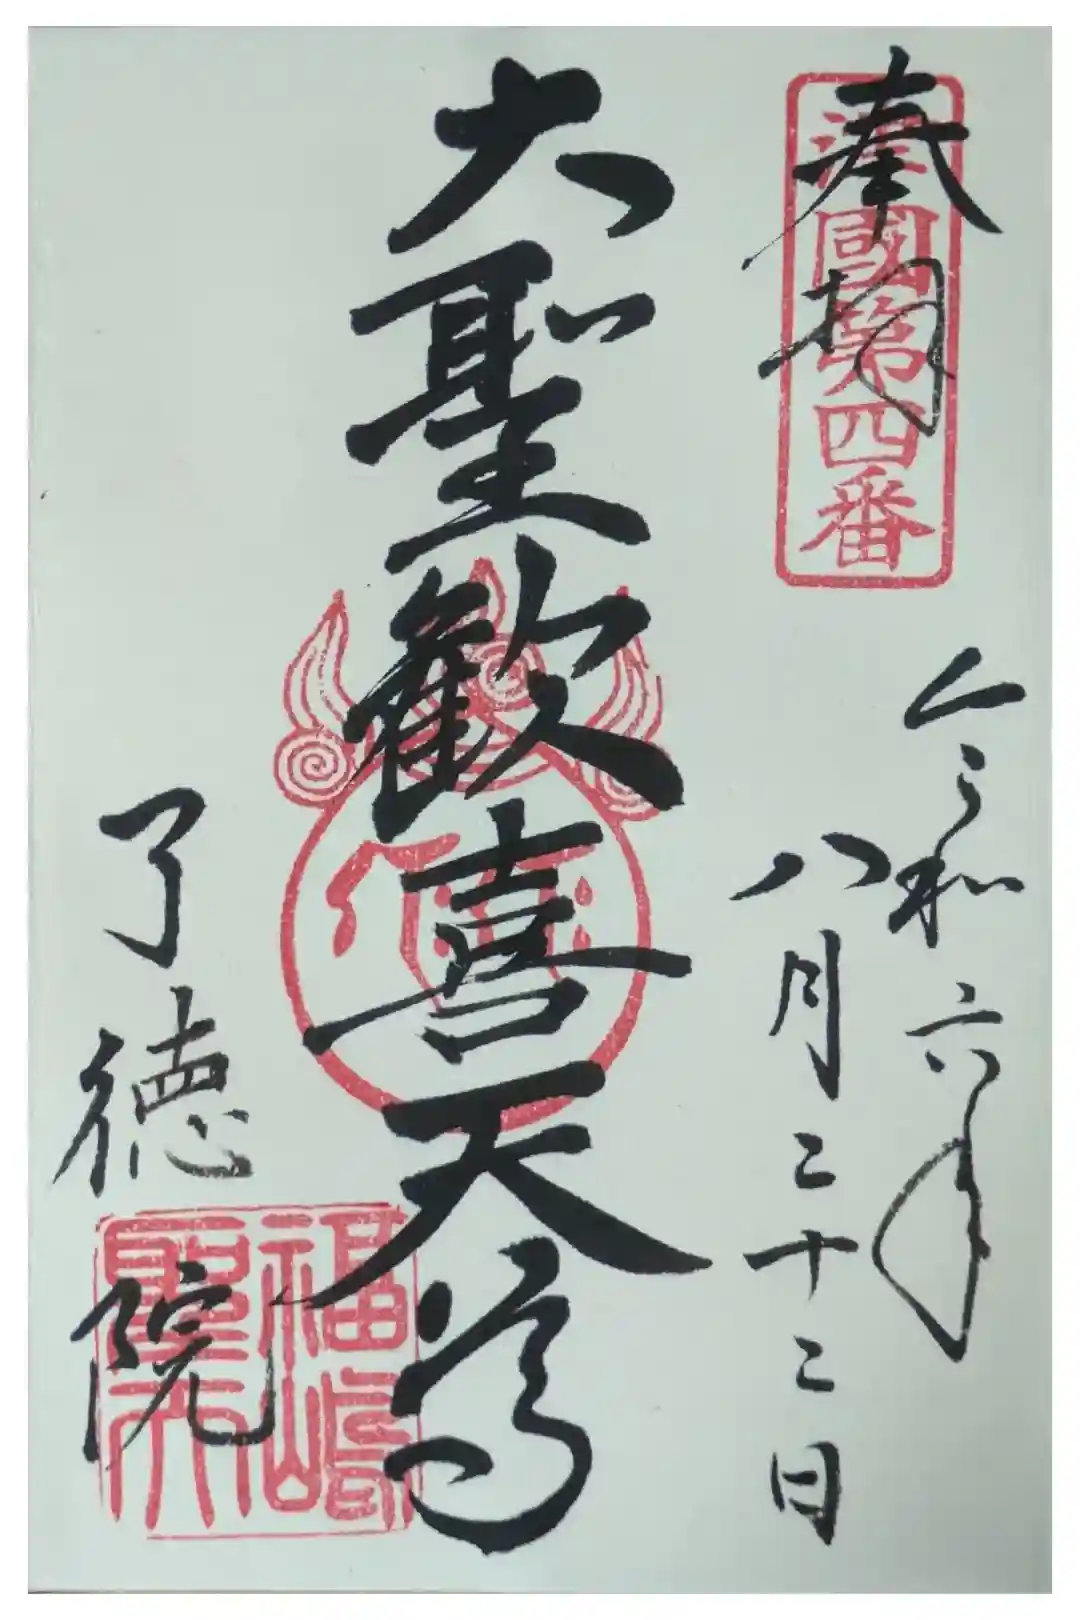 奉拝
津國第四番
令和六年
八月二十二日
大聖歓喜天尊
了徳院
福嶋
聖天